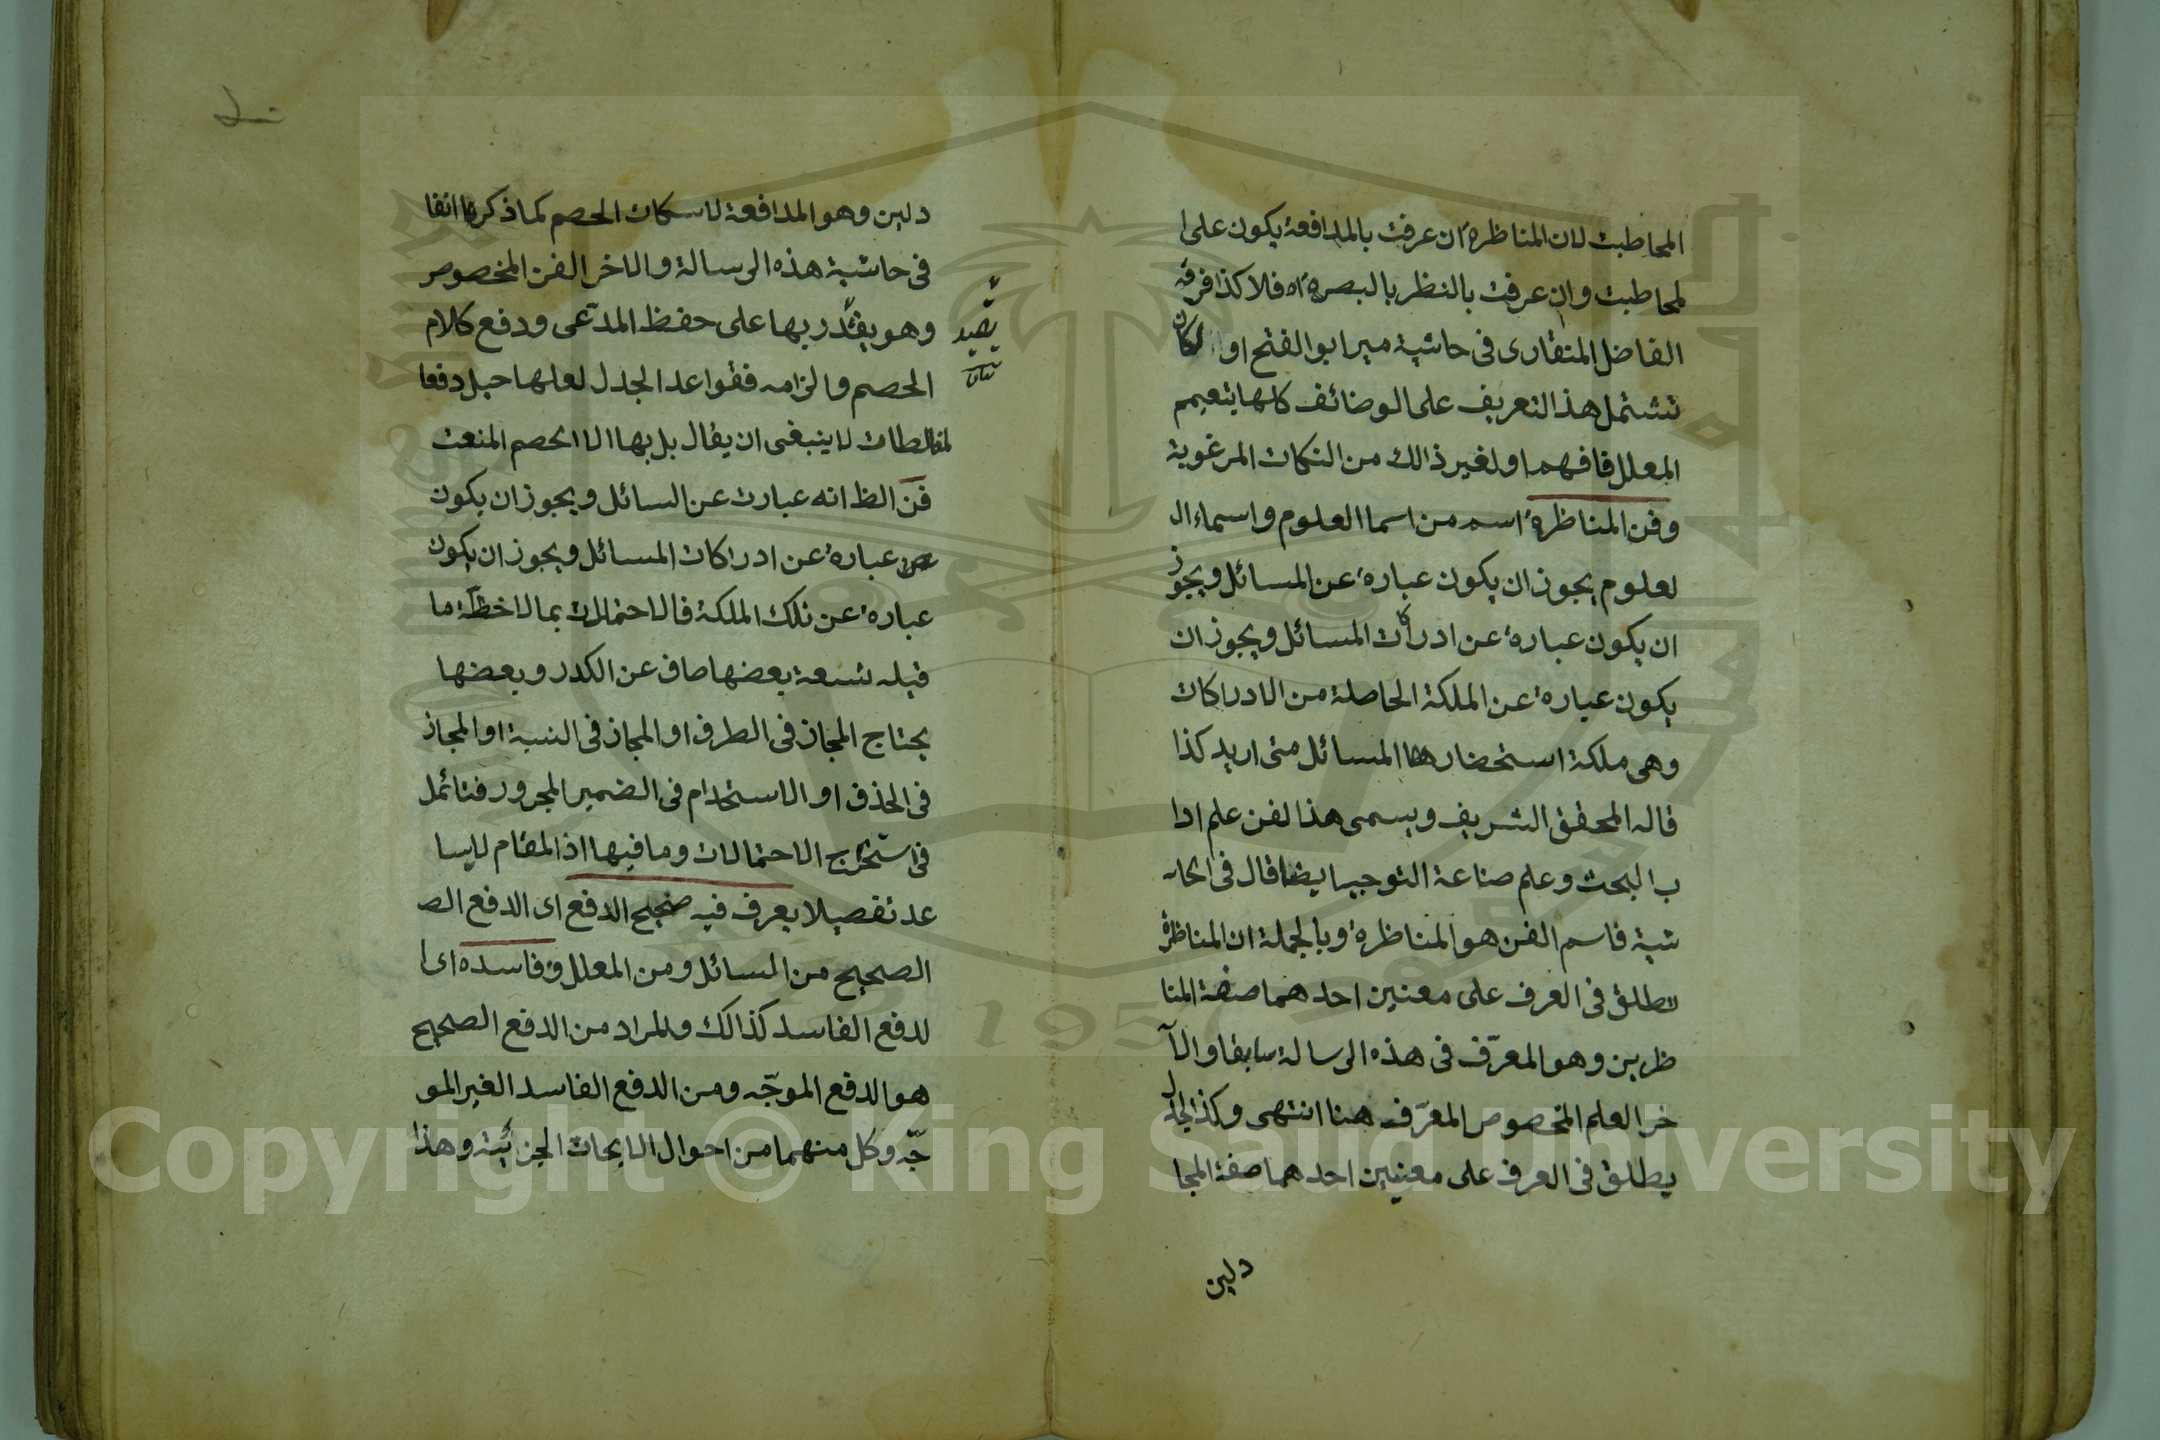 المخاطبت لان المناظرة ان عرفت بالمدافعة يكون على ا
لمخاطبت وان عرفت بالنظر بالبصرة اه فلا كذا فرقه
الفاضل المنقارى فى حاشية مير ابو الفتح او لكان
تشتمل هذا التعريف على الوضائف كلها بتعميم
المعلل فافهم او لغير ذالك من النكات المرغوبة
وفن المناظرة اسم من اسما العلوم واسماء ال
لعلوم يجوز ان يكون عبارة عن المسائل ويجوز
ان يكون عبارة عن ادراكات المسائل ويجوز ان
يكون عبارة عن الملكة الحاصلة من الادراكات
وهى ملكة استحضارها المسائل متى اريد كذا
قاله المحقق الشريف ويسمى هذا لفن علم ادا
ب البحث وعلم صناعة التوجيه ايضا قال فى الحا
شية فاسم الفن هو المناظرة وبالجملة ان المناظرة
تطلق فى العرف على معنين احدهما صفة المنا
ظرين وهو المعرّف فى هذه الرسالة سابقا والآ
خر العلم المخصوص المعرّف هنا انتهى وكذا الجدل
يطلق فى العرف على معنيين احدهما صفة المجا
دلين
دلين وهو المدافعة لاسكات الحصم كما ذكرنا انفا
فى حاشية هذه الرسالة والاخر الفن المخصوص
وهو يقتدر بها على حفظ المدّعى ودفع كلام
الحصم والزامه فقواعد الجدل لعلها حيل دفعا
لمغالطات لا ينبغى ان يقال بل بها الا الحصم المنعت
فن الظ انه عبارت عن السائل ويجوز ان يكون
عبارة عن ادراكات المسائل ويجوز ان يكون
عبارة عن تلك الملكة فالاحتمالات بملاخظة ما
قبله تسعة بعضها صاف عن الكدر وبعضها
يحتاج المجاز فى الطرف او المجاز فى النسبة او المجاز
فى الحذف او الاستخدام فى الضمير المجرور فتائمل
فى استخراج الاحتمالات وما فيها اذ المقام لا يسا
عد تفصيلا يعرف فيه صحيح الدفع اى الدفع الص
الصحيح من المسائل ومن المعلل وفاسده اى ا
لدفع الفاسد كذالك والمراد من الدفع الصحيح
هو الدفع الموجّه ومن الدفع الفاسد الغير المو
جّه وكل منهما من احوال الابحاث الجزئيّة وهذا
Copyright © King Saud University
1957